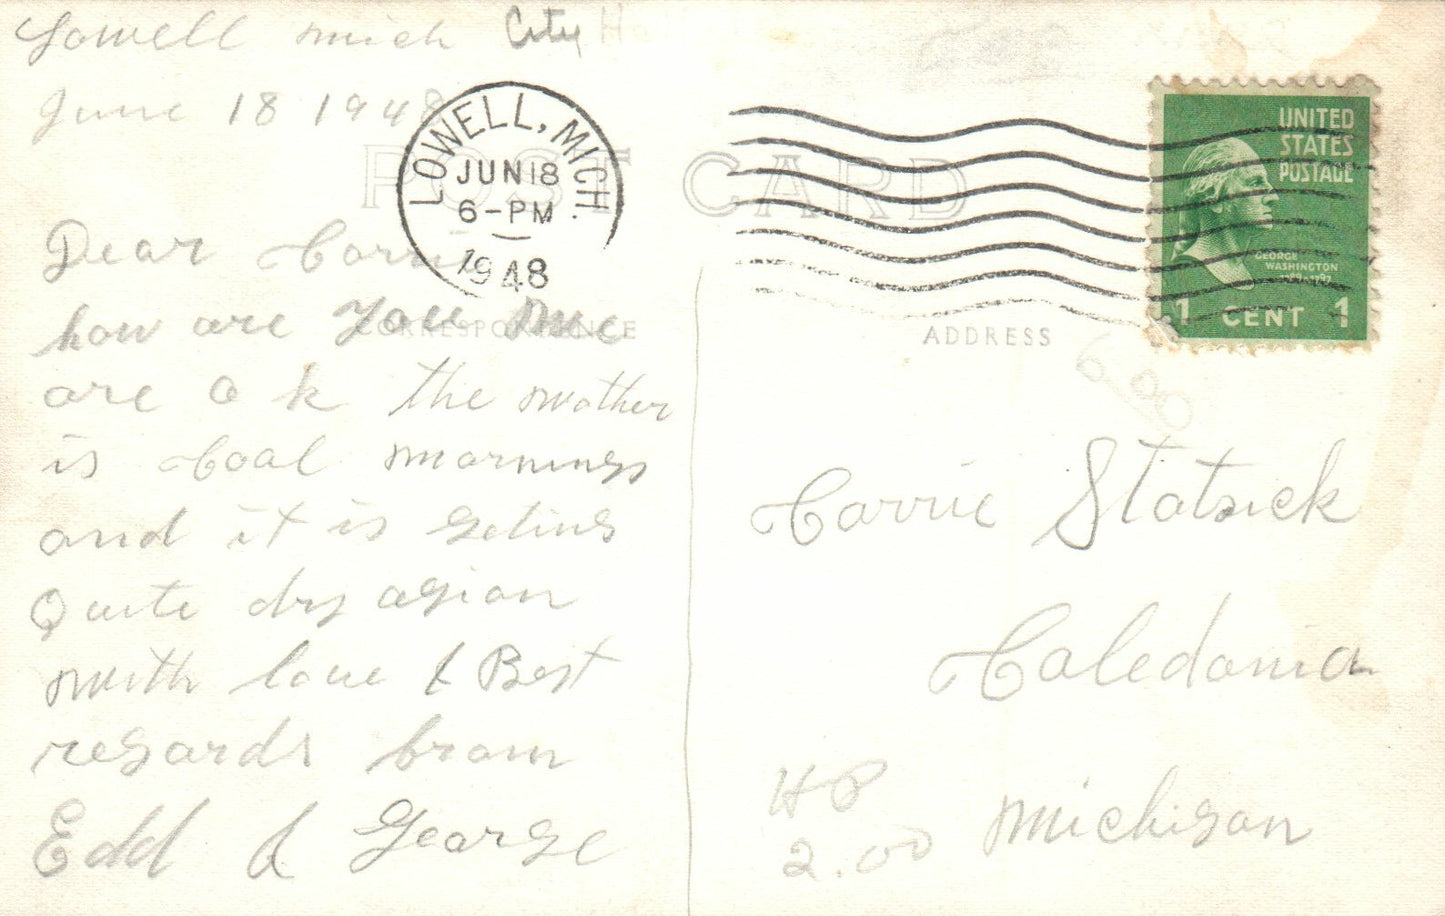 Lowell mich City
June 18 1948
LOWELL, MICH.
JUN 18
6-PM
1948
POST CARD
UNITED
STATES
POSTAGE
GEORGE
WASHINGTON
1789-1797
1 CENT 1
Dear Carrie
how are you we
CORRESPONDENCE
ADDRESS
are o k the wather
is coal mornings
and it is geting
Quite dry agian
with love & Best
regards from
Edd & George
6.00
Carrie Statsick
Caledonia
Michigan
HP
2.00